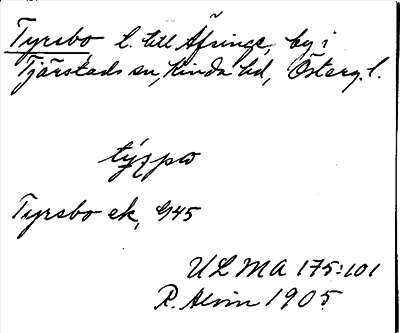 Tyrsbo, l. till Åsinge, by i
Tjärstads sn, Kinda hd, Österg. l.
Tyrsbo ek, G45
ULMA 175:101
R. Alvin 1905